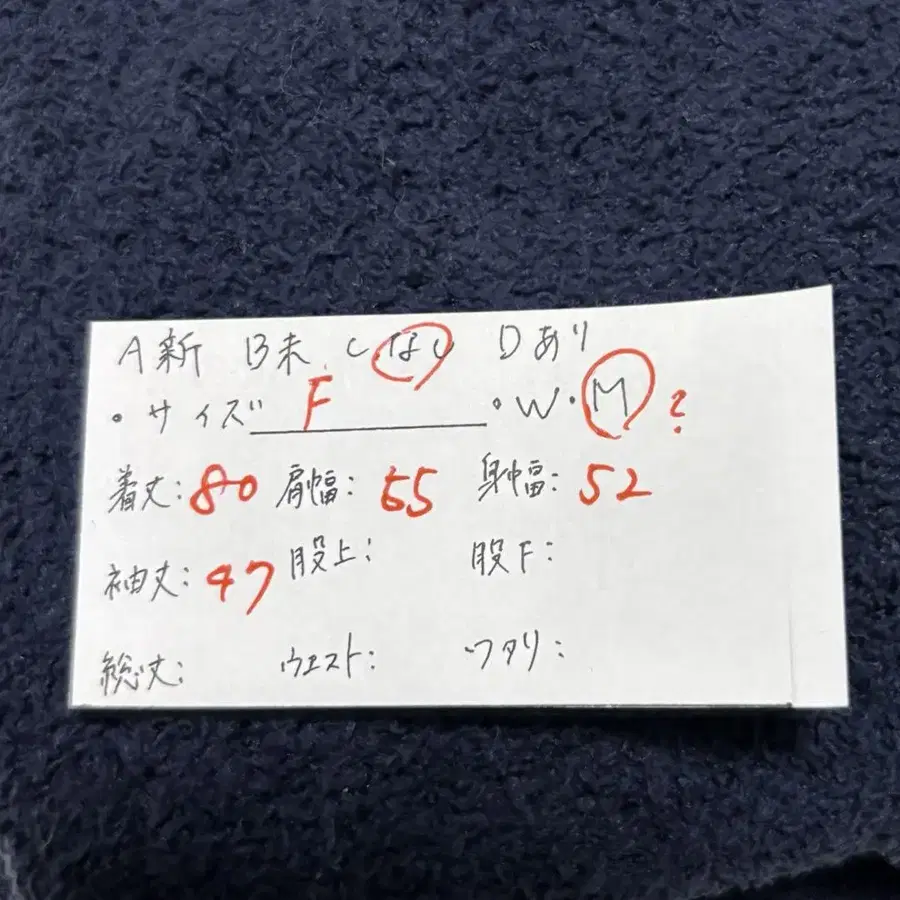 A新 B未 Cなし Dあり
・サイズ F ・W・M?
着丈:80 肩幅:55 身幅:52
袖丈:47 股上: 股下:
総丈: ウエスト: ワタリ: